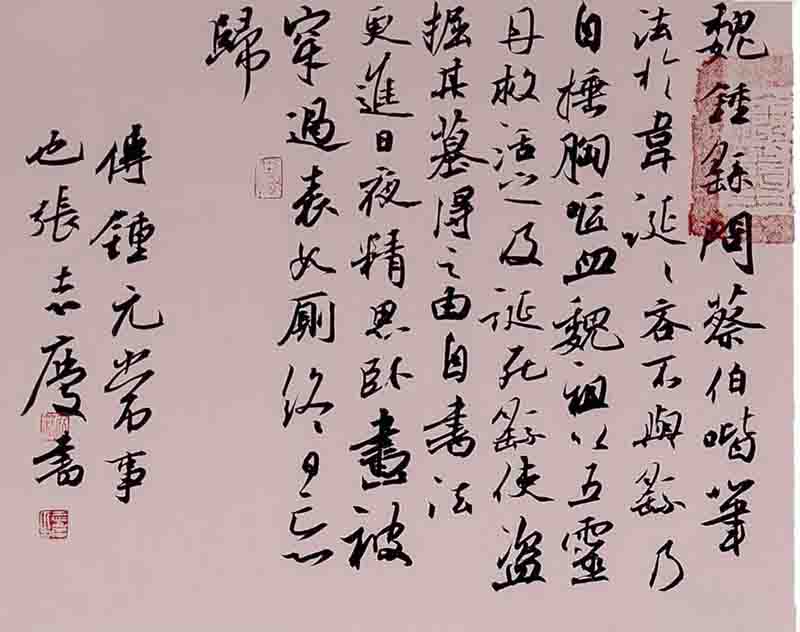 魏鍾繇問蔡伯喈筆
法於韋誕〻吝不與繇乃
自捶胸嘔血魏祖以五靈
丹救活之及誕死繇使盜
掘其墓得之由自書法
更進日夜精思臥畫被
穿過表如厠終日忘
歸
傳鍾元常事
也張志慶書